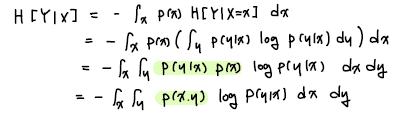 H[Y|X] = - ∫x p(x) H[Y|X=x] dx
= - ∫x p(x) ( ∫y p(y|x) log p(y|x) dy ) dx
= - ∫x ∫y p(y|x) p(x) log p(y|x) dx dy
= - ∫x ∫y p(x.y) log p(y|x) dx dy